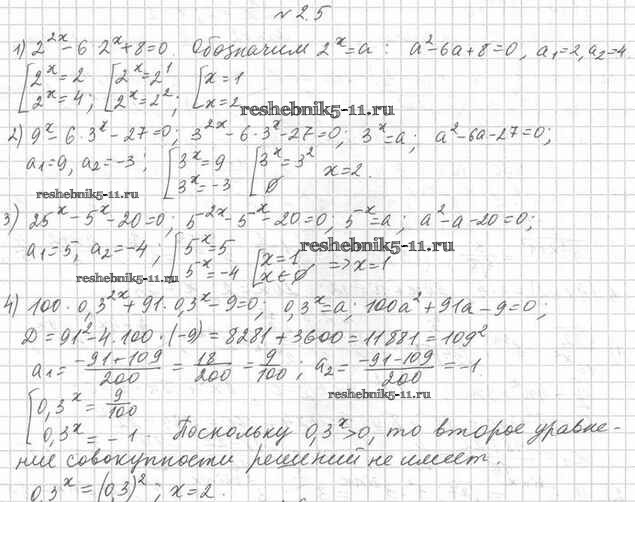 № 2.5
1) 2^{2x} - 6·2^x + 8 = 0. Обозначим 2^x = a : a² - 6a + 8 = 0, a₁ = 2, a₂ = 4.
[2^x = 2 [2^x = 2¹ [x = 1
2^x = 4; 2^x = 2²; x = 2
reshebnik5-11.ru
2) 9^x - 6·3^x - 27 = 0; 3^{2x} - 6·3^x - 27 = 0; 3^x = a; a² - 6a - 27 = 0;
a₁ = 9, a₂ = -3; [3^x = 9 [3^x = 3² x = 2.
3^x = -3 ∅
reshebnik5-11.ru
3) 25^x - 5^x - 20 = 0; 5^{-2x} - 5^{-x} - 20 = 0; 5^{-x} = a; a² - a - 20 = 0;
reshebnik5-11.ru
a₁ = 5, a₂ = -4; [5^{-x} = 5 [x = 1 => x = 1
5^{-x} = -4 x ∈ ∅
reshebnik5-11.ru
4) 100·0,3^{2x} + 91·0,3^x - 9 = 0; 0,3^x = a; 100a² + 91a - 9 = 0;
D = 91² - 4·100·(-9) = 8281 + 3600 = 11881 = 109²
a₁ = (-91+109)/200 = 18/200 = 9/100; a₂ = (-91-109)/200 = -1
reshebnik5-11.ru
[0,3^x = 9/100
0,3^x = -1. Поскольку 0,3^x > 0, то второе уравне-
ние совокупности решений не имеет.
0,3^x = (0,3)²; x = 2.